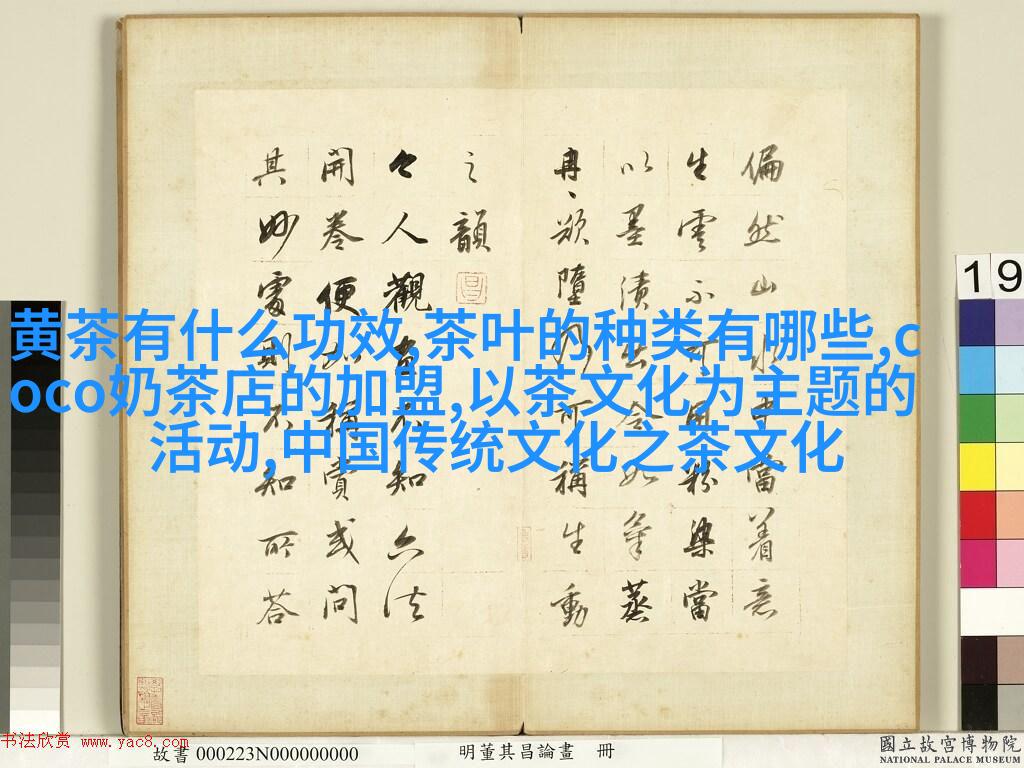 偏然山水中當着意
生雲不可用粉染當
以墨漬出令如氣蒸
冉、欲墮乃可稱生動
之韻
今人觀畫不知六法
開卷便加稱賞或問
其妙處則不知所答
黄茶有什么功效,茶叶的种类有哪些,c
oco奶茶店的加盟,以茶文化为主题的
活动,中国传统文化之茶文化
19
书法欣赏 www.yac8.com
故書 000223N000000000
明董其昌論畫 冊
國立故宮博物院
NATIONAL PALACE MUSEUM